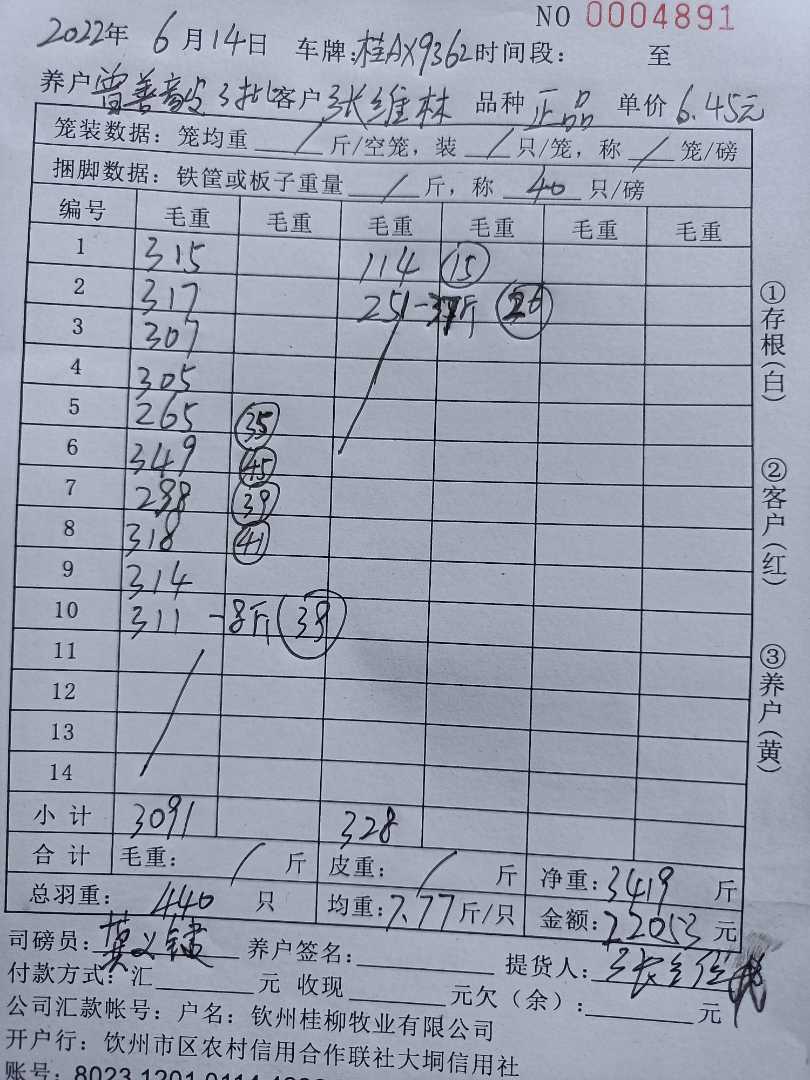 NO 0004891
2022年 6月14日 车牌:桂AX9362时间段: 至
养户曾善 3批客户张维林 品种 正品 单价 6.45元
笼装数据: 笼均重 / 斤/空笼, 装 / 只/笼, 称 / 笼/磅
捆脚数据: 铁筐或板子重量 / 斤, 称 40 只/磅
编号 毛重 毛重 毛重 毛重 毛重 毛重
1 315 114 15
2 317 251 -37斤 26
3 307
4 305
5 265 35
6 349 45
7 298 39
8 318 41
9 314
10 311 -8斤 39
11
12
13
14
小计 3091 328
合计 毛重: / 斤 皮重: / 斤 净重: 3419 斤
总羽重: 440 只 均重: 7.77斤/只 金额: 22053 元
司磅员: 养户签名: 提货人:
付款方式: 汇 元 收现 元欠(余): 元
公司汇款帐号: 户名: 钦州桂柳牧业有限公司
开户行: 钦州市区农村信用合作联社大垌信用社
账号: 8023 1201 0114
①存根(白)
②客户(红)
③养户(黄)